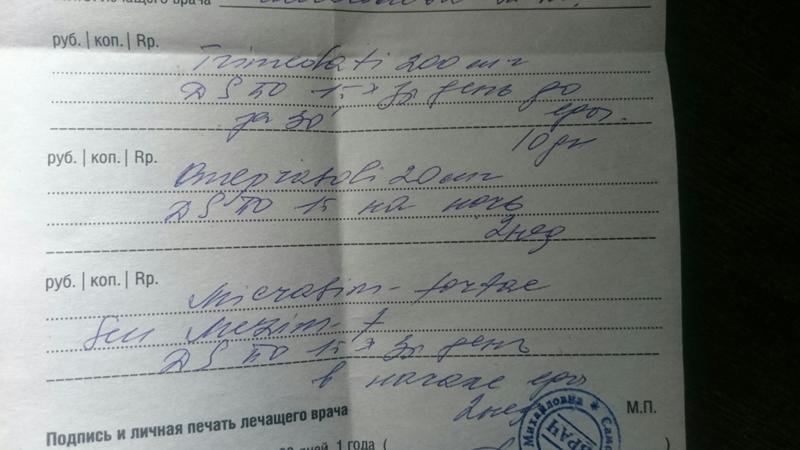 лечащего врача
руб. | коп. | Rp.
Trimedati 200 мг
DS по 1т × 3р день до
за 30' еды.
10 дн
руб. | коп. | Rp.
Omeprasoli 20 мг
DS по 1т на ночь
2 нед
руб. | коп. | Rp.
Micrasim - fortae
Seu Mezim - f
DS по 1т × 3р день
в начале еды
2 нед
Подпись и личная печать лечащего врача
М.П.
Михайловна ★ Само
ВРАЧ
дней, 1 года (
)